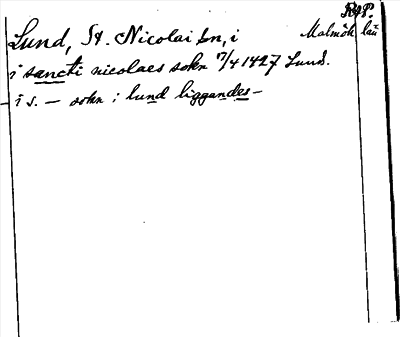 RAP.
Lund, St. Nicolai sn, i Malmöh län
i sancti nicolaes sokn 17/4 1427 Lund.
i s. — sokn i lund liggandes —